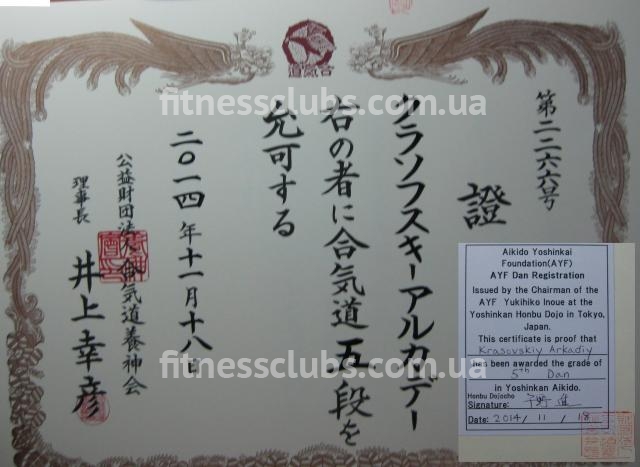 合氣道
第二二六六号
證
クラソフスキーアルカデー
右の者に合気道五段を
允可する
二〇一四年十一月十八日
公益財団法人合気道養神会
理事長
井上幸彦
Aikido Yoshinkai
Foundation(AYF)
AYF Dan Registration
Issued by the Chairman of the
AYF Yukihiko Inoue at the
Yoshinkan Honbu Dojo in Tokyo,
Japan.
This certificate is proof that
Krasovskiy Arkadiy
has been awarded the grade of
5th Dan
in Yoshinkan Aikido.
Honbu Dojocho
Signature: 千野 進
Date: 2014/ 11 / 18
fitnessclubs.com.ua
fitnessclubs.com.ua